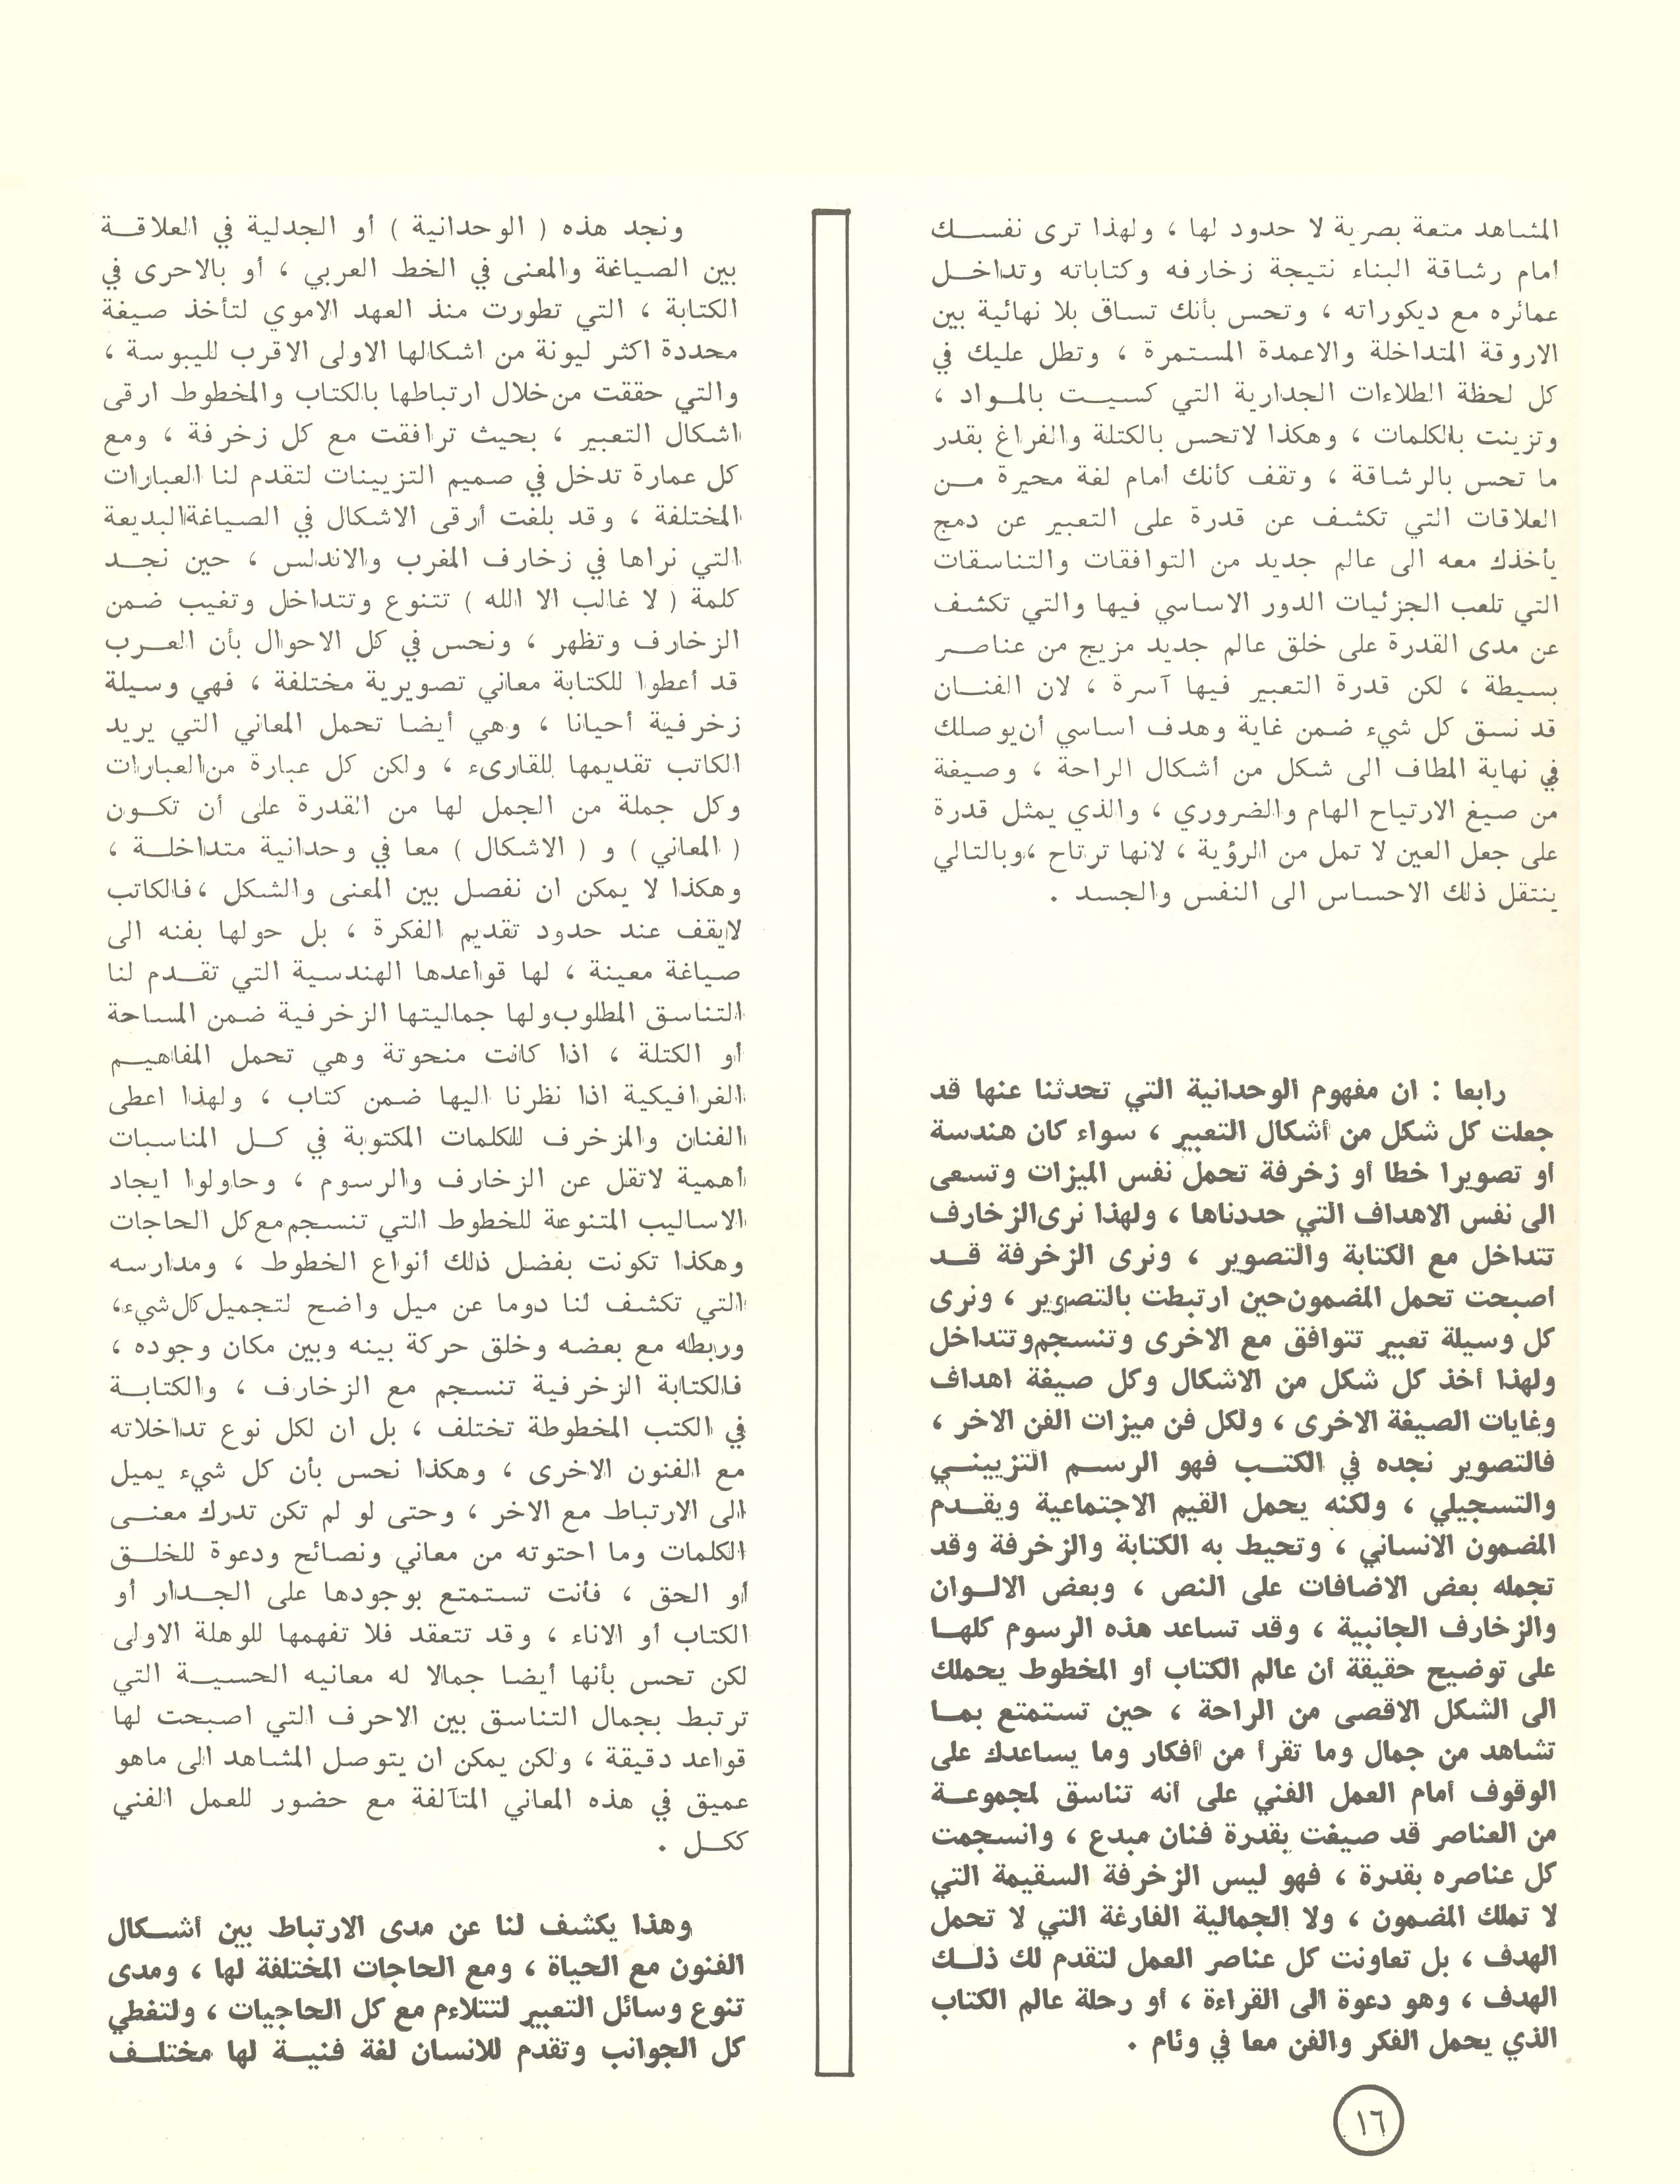 المشاهد متعة بصرية لا حدود لها ، ولهذا ترى نفسك
امام رشاقة البناء نتيجة زخارفه وكتاباته وتداخل
عمائره مع ديكوراته ، وتحس بأنك تساق بلا نهائية بين
الاروقة المتداخلة والاعمدة المستمرة ، وتطل عليك في
كل لحظة الطلاءات الجدارية التي كسيت بالمواد ،
وتزينت بالكلمات ، وهكذا لاتحس بالكتلة والفراغ بقدر
ما تحس بالرشاقة ، وتقف كأنك امام لغة محيرة من
العلاقات التي تكشف عن قدرة على التعبير عن دمج
يأخذك معه الى عالم جديد من التوافقات والتناسقات
التي تلعب الجزئيات الدور الاساسي فيها والتي تكشف
عن مدى القدرة على خلق عالم جديد مزيج من عناصر
بسيطة ، لكن قدرة التعبير فيها آسرة ، لان الفنان
قد نسق كل شيء ضمن غاية وهدف اساسي أن يوصلك
في نهاية المطاف الى شكل من أشكال الراحة ، وصيغة
من صيغ الارتياح الهام والضروري ، والذي يمثل قدرة
على جعل العين لا تمل من الرؤية ، لانها ترتاح ، وبالتالي
ينتقل ذلك الاحساس الى النفس والجسد .
رابعا : ان مفهوم الوحدانية التي تحدثنا عنها قد
جعلت كل شكل من أشكال التعبير ، سواء كان هندسة
او تصويرا خطا أو زخرفة تحمل نفس الميزات وتسعى
الى نفس الاهداف التي حددناها ، ولهذا نرى الزخارف
تتداخل مع الكتابة والتصوير ، ونرى الزخرفة قد
اصبحت تحمل المضمون حين ارتبطت بالتصوير ، ونرى
كل وسيلة تعبير تتوافق مع الاخرى وتنسجم وتتداخل
ولهذا أخذ كل شكل من الاشكال وكل صيغة اهداف
وغايات الصيغة الاخرى ، ولكل فن ميزات الفن الاخر ،
فالتصوير نجده في الكتب فهو الرسم التزييني
والتسجيلي ، ولكنه يحمل القيم الاجتماعية ويقدم
المضمون الانساني ، وتحيط به الكتابة والزخرفة وقد
تجمله بعض الاضافات على النص ، وبعض الالوان
والزخارف الجانبية ، وقد تساعد هذه الرسوم كلها
على توضيح حقيقة أن عالم الكتاب أو المخطوط يحملك
الى الشكل الاقصى من الراحة ، حين تستمتع بما
تشاهد من جمال وما تقرأ من أفكار وما يساعدك على
الوقوف أمام العمل الفني على أنه تناسق لمجموعة
من العناصر قد صيغت بقدرة فنان مبدع ، وانسجمت
كل عناصره بقدرة ، فهو ليس الزخرفة السقيمة التي
لا تملك المضمون ، ولا الجمالية الفارغة التي لا تحمل
الهدف ، بل تعاونت كل عناصر العمل لتقدم لك ذلك
الهدف ، وهو دعوة الى القراءة ، أو رحلة عالم الكتاب
الذي يحمل الفكر والفن معا في وئام .
ونجد هذه ( الوحدانية ) أو الجدلية في العلاقة
بين الصياغة والمعنى في الخط العربي ، أو بالاحرى في
الكتابة ، التي تطورت منذ العهد الاموي لتأخذ صيغة
محددة اكثر ليونة من اشكالها الاولى الاقرب لليبوسة ،
والتي حققت من خلال ارتباطها بالكتاب والمخطوط ارقى
اشكال التعبير ، بحيث ترافقت مع كل زخرفة ، ومع
كل عمارة تدخل في صميم التزيينات لتقدم لنا العبارات
المختلفة ، وقد بلغت أرقى الاشكال في الصياغة البديعة
التي نراها في زخارف المغرب والاندلس ، حين نجد
كلمة ( لا غالب الا الله ) تتنوع وتتداخل وتغيب ضمن
الزخارف وتظهر ، ونحس في كل الاحوال بأن العرب
قد أعطوا للكتابة معاني تصويرية مختلفة ، فهي وسيلة
زخرفية أحيانا ، وهي أيضا تحمل المعاني التي يريد
الكاتب تقديمها للقارىء ، ولكن كل عبارة من العبارات
وكل جملة من الجمل لها من القدرة على أن تكون
( المعاني ) و ( الاشكال ) معا في وحدانية متداخلة ،
وهكذا لا يمكن ان نفصل بين المعنى والشكل ، فالكاتب
لايقف عند حدود تقديم الفكرة ، بل حولها بفنه الى
صياغة معينة ، لها قواعدها الهندسية التي تقدم لنا
التناسق المطلوب ولها جماليتها الزخرفية ضمن المساحة
أو الكتلة ، اذا كانت منحوتة وهي تحمل المفاهيم
الغرافيكية اذا نظرنا اليها ضمن كتاب ، ولهذا اعطى
الفنان والمزخرف للكلمات المكتوبة في كل المناسبات
أهمية لاتقل عن الزخارف والرسوم ، وحاولوا ايجاد
الاساليب المتنوعة للخطوط التي تنسجم مع كل الحاجات
وهكذا تكونت بفضل ذلك أنواع الخطوط ، ومدارسه
التي تكشف لنا دوما عن ميل واضح لتجميل كل شيء،
وربطه مع بعضه وخلق حركة بينه وبين مكان وجوده ،
فالكتابة الزخرفية تنسجم مع الزخارف ، والكتابة
في الكتب المخطوطة تختلف ، بل ان لكل نوع تداخلاته
مع الفنون الاخرى ، وهكذا نحس بأن كل شيء يميل
الى الارتباط مع الاخر ، وحتى لو لم تكن تدرك معنى
الكلمات وما احتوته من معاني ونصائح ودعوة للخلق
أو الحق ، فأنت تستمتع بوجودها على الجدار أو
الكتاب أو الاناء ، وقد تتعقد فلا تفهمها للوهلة الاولى
لكن تحس بأنها أيضا جمالا له معانيه الحسية التي
ترتبط بجمال التناسق بين الاحرف التي اصبحت لها
قواعد دقيقة ، ولكن يمكن ان يتوصل المشاهد الى ماهو
عميق في هذه المعاني المتآلفة مع حضور للعمل الفني
ككل .
وهذا يكشف لنا عن مدى الارتباط بين أشكال
الفنون مع الحياة ، ومع الحاجات المختلفة لها ، ومدى
تنوع وسائل التعبير لتتلاءم مع كل الحاجيات ، ولتغطي
كل الجوانب وتقدم للانسان لغة فنية لها مختلف
١٦